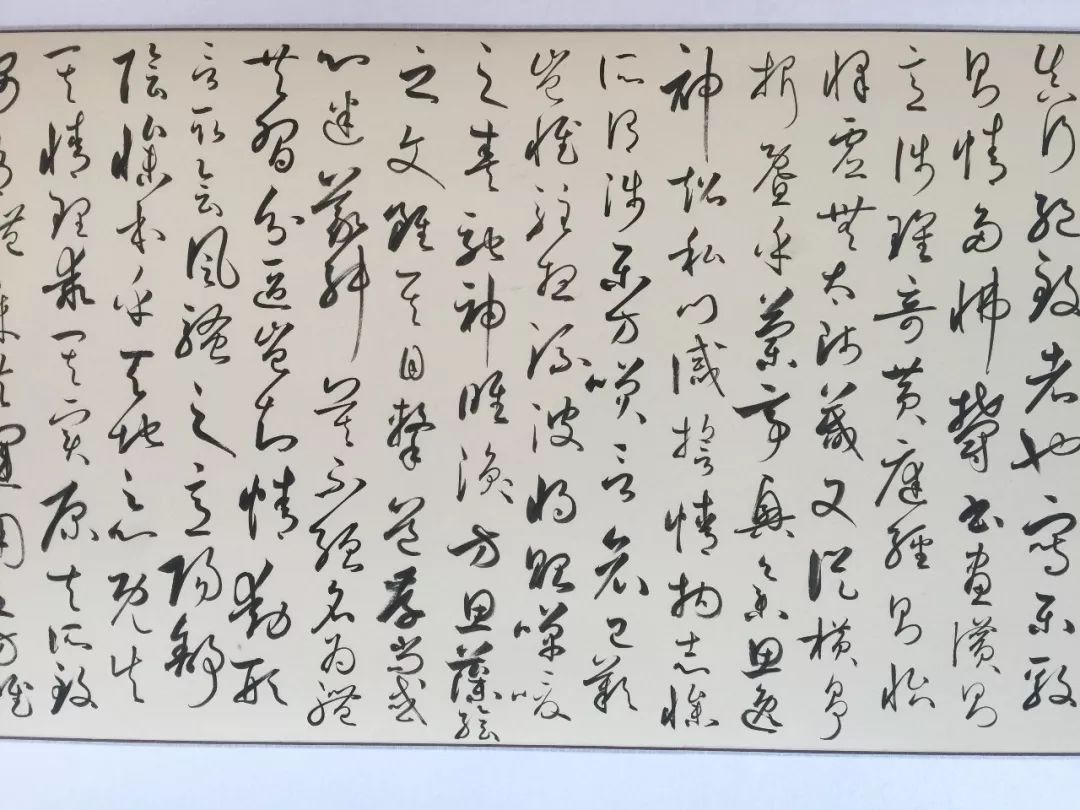 真行絕致者也寫樂毅
則情多怫鬱書畫讚則
意涉瓌奇黃庭經則怡
懌虛無太師箴又縱橫爭
折暨乎蘭亭興集思逸
神超私門誡誓情拘志慘
所謂涉樂方笑言哀已歎
豈惟駐想流波將貽嘽喛
之奏馳神睢渙方思藻繪
之文雖其目擊道存尚或
心迷義舛莫不強名為體
共習分區豈知情動形
言取會風騷之意陽舒
陰慘本乎天地之心既失
其情理乖其實原夫所致
運用之方雖